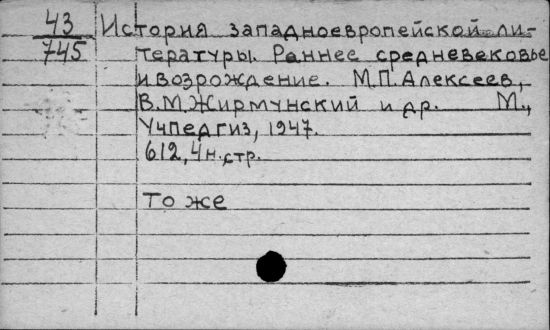 43 История западноевропейской ли-
745 тературы. Раннее средневековье
и возрождение. М.П.Алексеев,
В.М.Жирмунский и др. М.,
Учпедгиз, 1947.
612,4н.стр.
То же